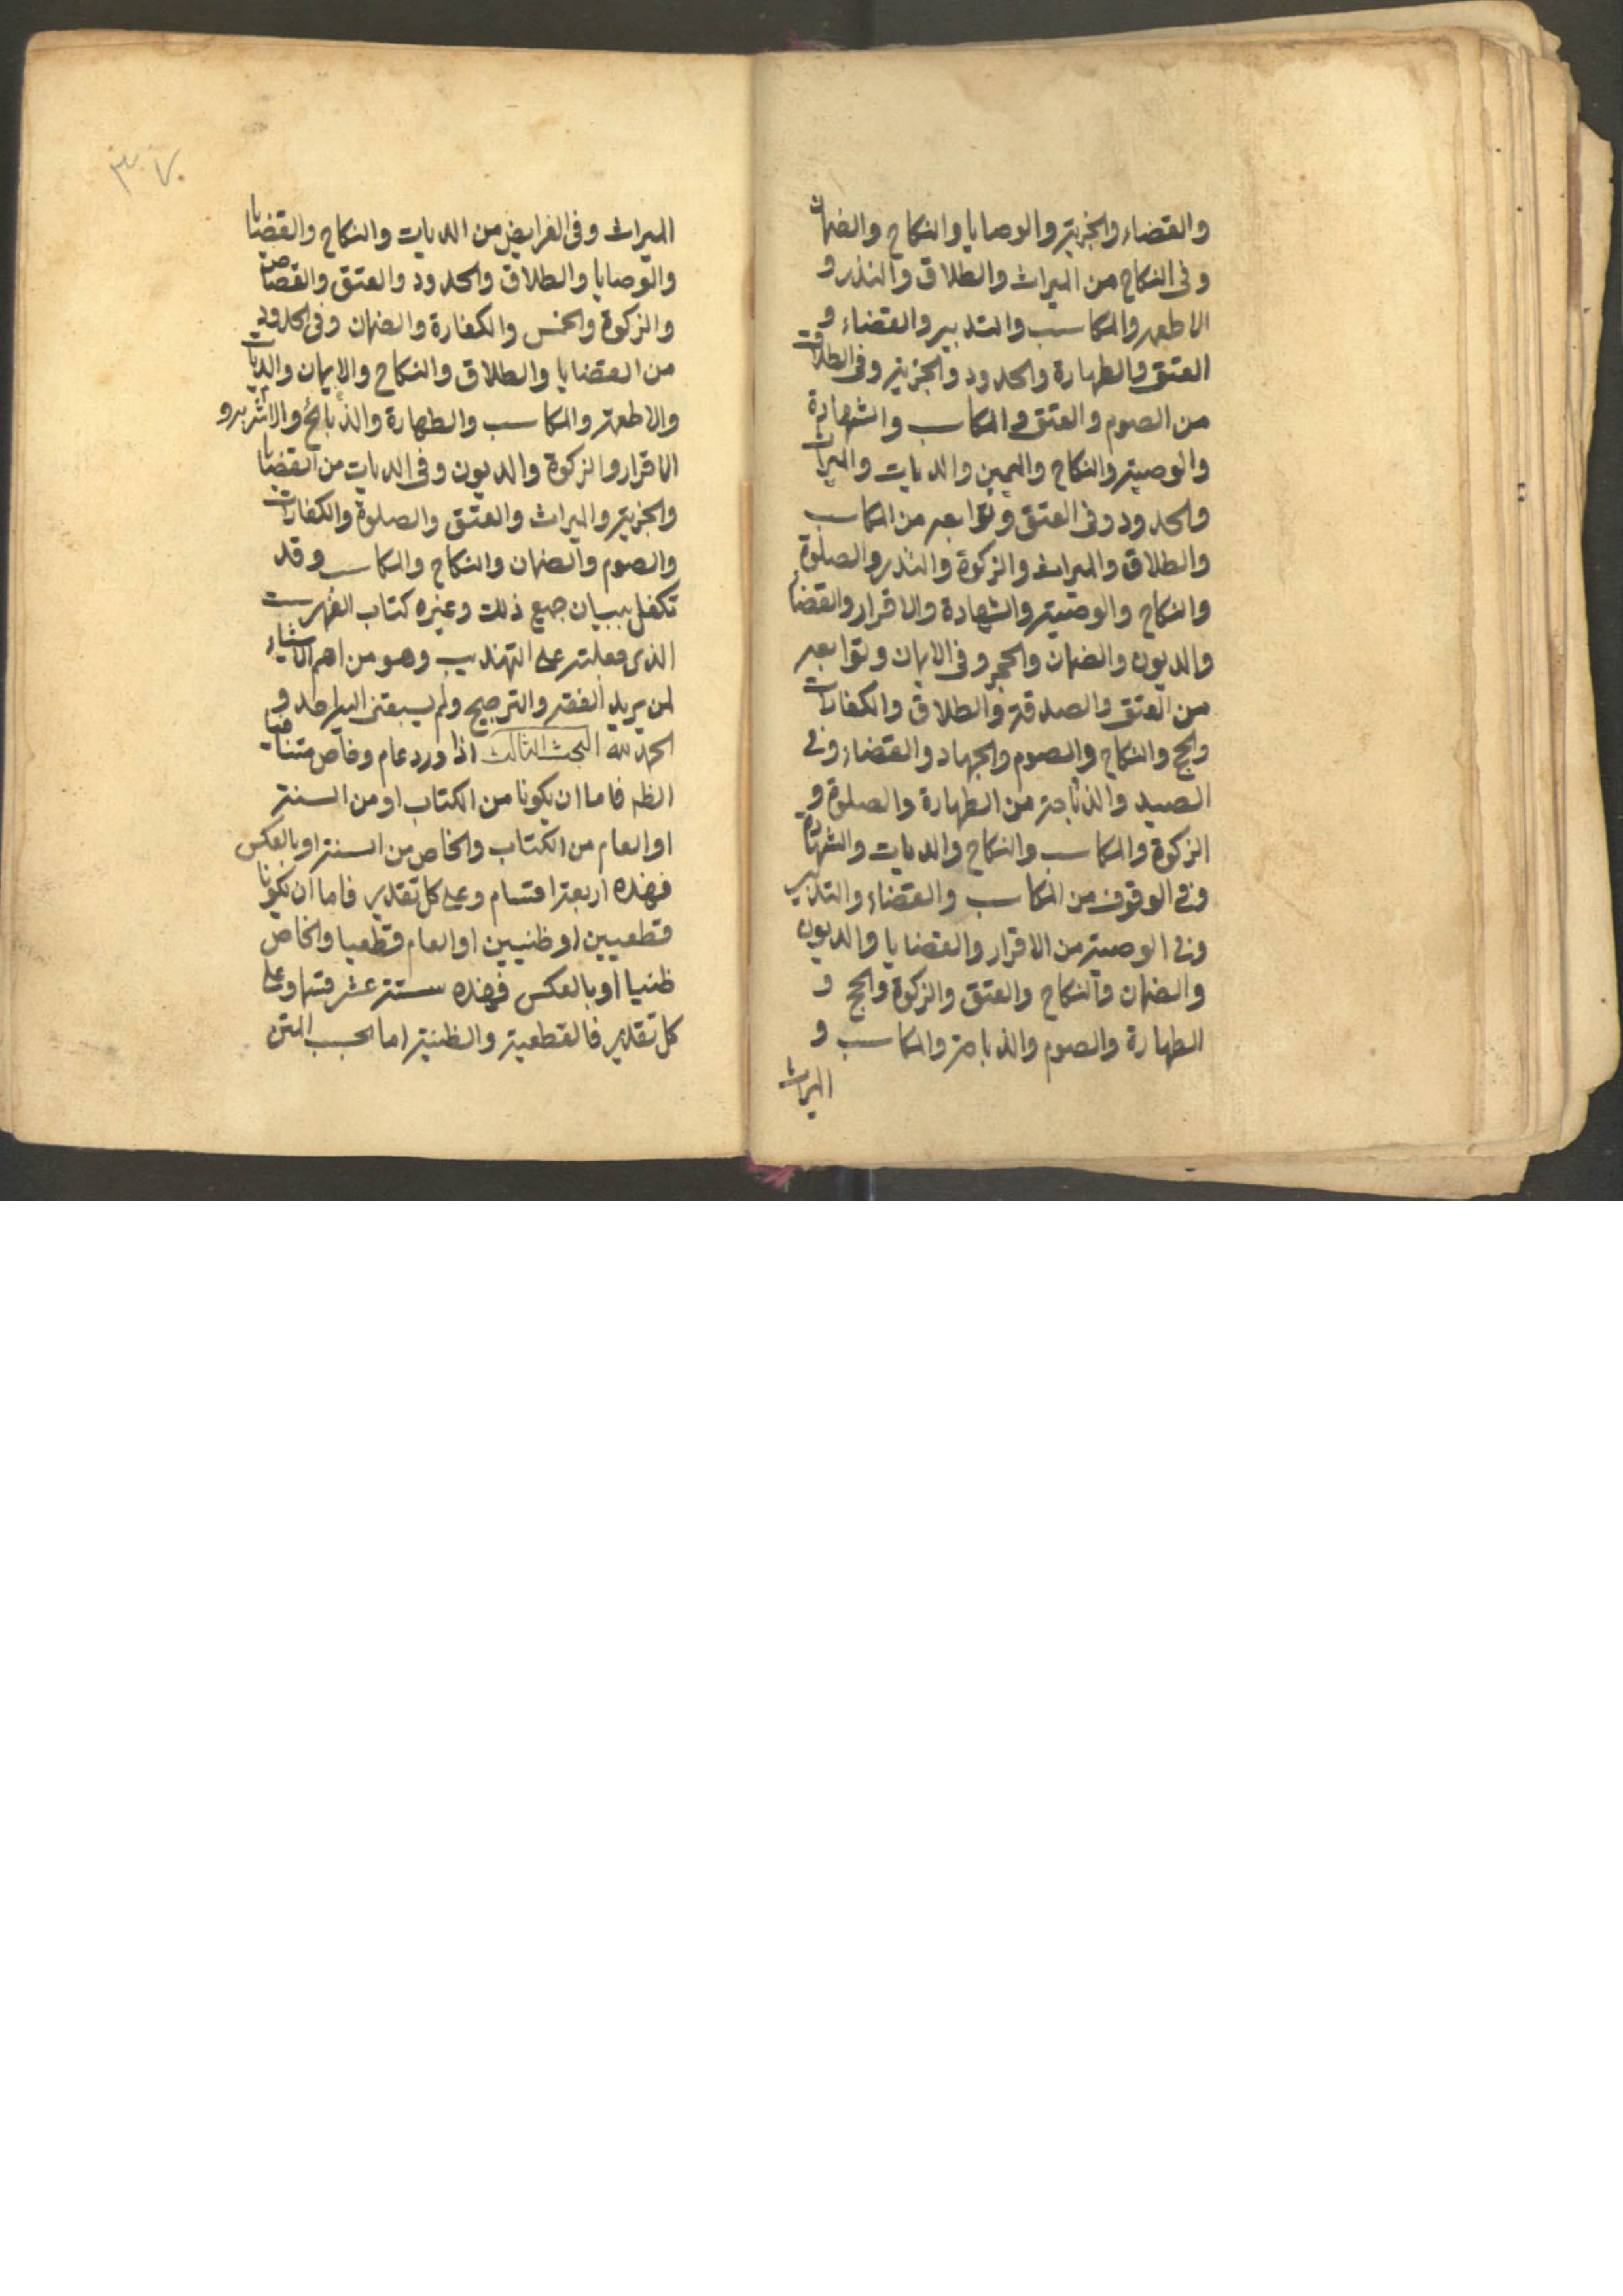 والقضاء والجزية والوصايا والنكاح والضمان
وفى النكاح من الميراث والطلاق والنذر و
الاطعمه والمكاسب والتدبير والقضاء و
العتق والطهارة والحدود والجزية وفى الطلاق
من الصوم والعتق والمكاسب والشهادة
والوصية والنكاح واليمين والديات والميراث
والحدود وفى العتق وتوابعه من المكاسب
والطلاق والميراث والزكوة والنذر والصلوة
والنكاح والوصية والشهادة والاقرار والقضاء
والديون والضمان والحجر وفى الايمان وتوابعه
من العتق والصدقة والطلاق والكفارات
والحج والنكاح والصوم والجهاد والقضاء وفى
الصيد والذباحة من الطهارة والصلوة و
الزكوة والمكاسب والنكاح والديات والشهادة
وفى الوقوف من المكاسب والقضاء والتدبير
وفى الوصية من الاقرار والقضايا والديون
والضمان والنكاح والعتق والزكوة والحج و
الطهارة والصوم والذباحة والمكاسب و
الميراث
٣٠٧
الميراث وفى الفرايض من الديات والنكاح والقضايا
والوصايا والطلاق والحدود والعتق والقصاص
والزكوة والخمس والكفارة والضمان وفى الحدود
من القضايا والطلاق والنكاح والايمان والديات
والاطعمة والمكاسب والطهارة والذبائح والاشربه و
الاقرار والزكوة والديون وفى الديات من القضايا
والجزية والميراث والعتق والصلوة والكفارات
والصوم والضمان والنكاح والمكاسب وقد
تكفل ببيان جميع ذلك وغيره كتاب الفهرست
الذى فعلته على التهذيب وهو من اهم الاشياء
لمن يريد الفقه والترجيح ولم يسبقنى اليه احد و
الحمد لله البحث الثالث اذا ورد عام وخاص متنافيا
الظه فاما ان يكونا من الكتاب او من السنة
او العام من الكتاب والخاص من السنة او بالعكس
فهذه اربعة اقسام وعلى كل تقدير فاما ان يكونا
قطعيين او ظنيين او العام قطعيا والخاص
ظنيا او بالعكس فهذه ستة عشر قسما وعلى
كل تقدير فالقطعية والظنية اما بحسب المتن